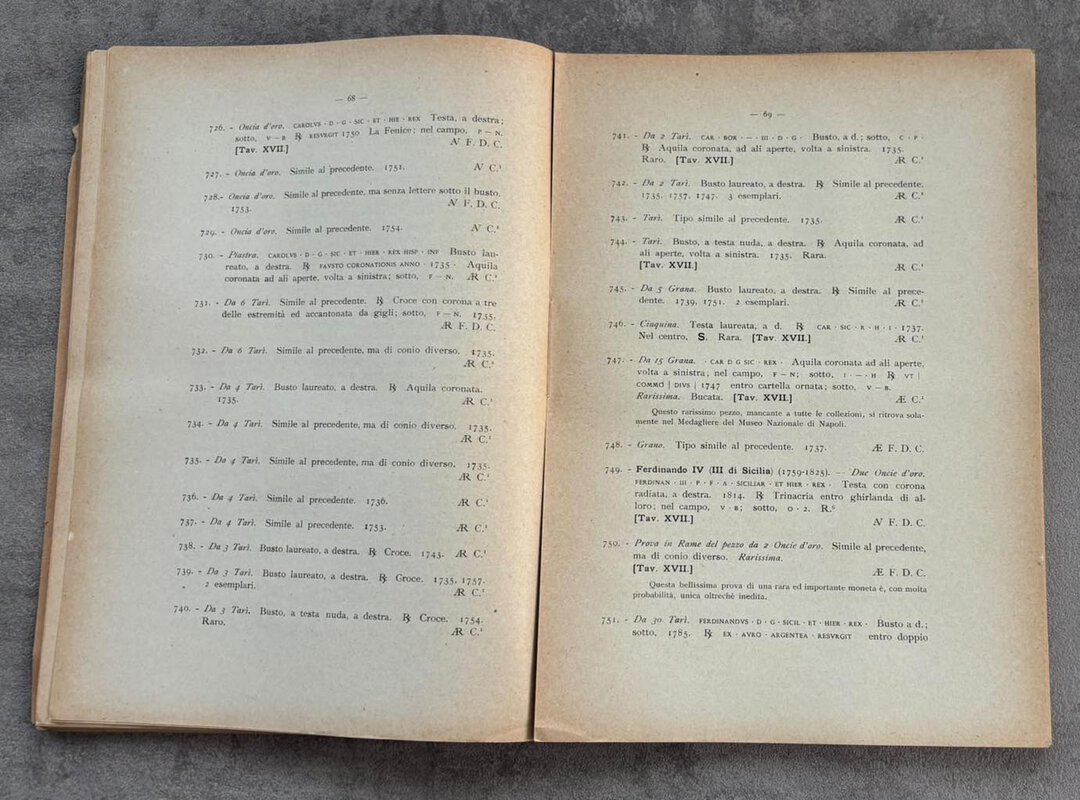 — 68 —
726. - Oncia d'oro. CAROLVS · D · G · SIC · ET · HIE · REX Testa, a destra;
sotto, V — B ℞ RESVRGIT 1750 La Fenice; nel campo, P — N.
[Tav. XVII.] N F. D. C.
727. - Oncia d'oro. Simile al precedente. 1751. N C.¹
728.- Oncia d'oro. Simile al precedente, ma senza lettere sotto il busto.
1753. N F. D. C.
729. - Oncia d'oro. Simile al precedente. 1754. N C.¹
730. - Piastra. CAROLVS · D · G · SIC · ET · HIER · REX HISP · INF Busto lau-
reato, a destra. ℞ FAVSTO CORONATIONIS ANNO · 1735 · Aquila
coronata ad ali aperte, volta a sinistra; sotto, F — N. Æ C.¹
731. - Da 6 Tarì. Simile al precedente. ℞ Croce con corona a tre
delle estremità ed accantonata da gigli; sotto, F — N. 1735.
ÆR F. D. C.
732. - Da 6 Tarì. Simile al precedente, ma di conio diverso. 1735.
ÆR C.¹
733. - Da 4 Tarì. Busto laureato, a destra. ℞ Aquila coronata.
1735. ÆR C.¹
734. - Da 4 Tarì. Simile al precedente, ma di conio diverso. 1735.
ÆR C.¹
735. - Da 4 Tarì. Simile al precedente, ma di conio diverso. 1735.
ÆR C.¹
736. - Da 4 Tarì. Simile al precedente. 1736. ÆR C.¹
737. - Da 4 Tarì. Simile al precedente. 1753. ÆR C.¹
738. - Da 3 Tarì. Busto laureato, a destra. ℞ Croce. 1743. ÆR C.¹
739. - Da 3 Tarì. Busto laureato, a destra. ℞ Croce. 1735, 1757.
2 esemplari. ÆR C.¹
740. - Da 3 Tarì. Busto, a testa nuda, a destra. ℞ Croce. 1754.
Raro. ÆR C.¹
— 69 —
741. - Da 2 Tarì. CAR · BOR · — · III · D · G · Busto, a d.; sotto, C · P ·
℞ Aquila coronata, ad ali aperte, volta a sinistra. 1735.
Raro. [Tav. XVII.] ÆR C.¹
742. - Da 2 Tarì. Busto laureato, a destra. ℞ Simile al precedente.
1735. 1757. 1747. 3 esemplari. ÆR C.¹
743. - Tarì. Tipo simile al precedente. 1735. ÆR C.¹
744. - Tarì. Busto, a testa nuda, a destra. ℞ Aquila coronata, ad
ali aperte, volta a sinistra. 1735. Rara.
[Tav. XVII.] ÆR C.¹
745. - Da 5 Grana. Busto laureato, a destra. ℞ Simile al prece-
dente. 1739, 1751. 2 esemplari. ÆR C.¹
746. - Cinquina. Testa laureata, a d. ℞ CAR · SIC · R · H · I · 1737.
Nel centro, S. Rara. [Tav. XVII.] ÆR C.¹
747. - Da 15 Grana. · CAR D G SIC · REX · Aquila coronata ad ali aperte,
volta a sinistra; nel campo, F — N; sotto, I · — · H ℞ VT |
COMMO | DIVS | 1747 entro cartella ornata; sotto, V — B.
Rarissima. Bucata. [Tav. XVII.] Æ C.¹
Questo rarissimo pezzo, mancante a tutte le collezioni, si ritrova sola-
mente nel Medagliere del Museo Nazionale di Napoli.
748. - Grano. Tipo simile al precedente. 1737. Æ F. D. C.
749. - Ferdinando IV (III di Sicilia) (1759-1825). — Due Oncie d'oro.
FERDINAN · III · P · F · A · SICILIAR · ET HIER · REX · Testa con corona
radiata, a destra. 1814. ℞ Trinacria entro ghirlanda di al-
loro; nel campo, V · B; sotto, O · 2. R.⁶
[Tav. XVII.] N F. D. C.
750. - Prova in Rame del pezzo da 2 Oncie d'oro. Simile al precedente,
ma di conio diverso. Rarissima.
[Tav. XVII.] Æ F. D. C.
Questa bellissima prova di una rara ed importante moneta è, con molta
probabilità, unica oltrechè inedita.
751. - Da 30 Tarì. FERDINANDVS · D · G · SICIL · ET · HIER · REX · Busto a d.;
sotto, 1785. ℞ EX · AVRO · ARGENTEA · RESVRGIT entro doppio